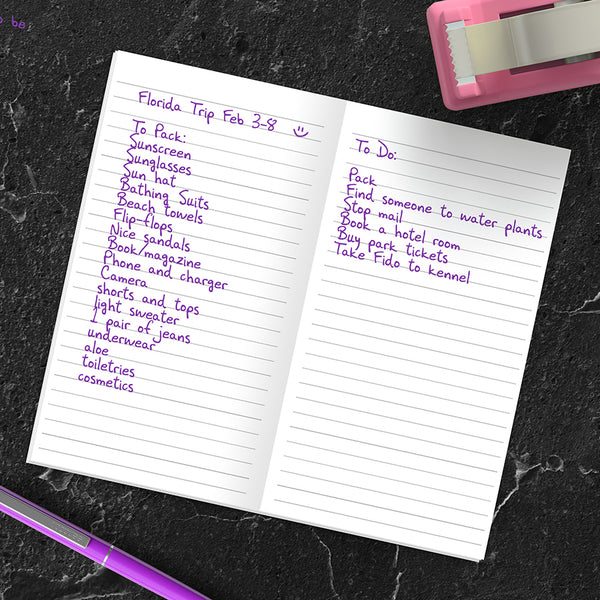 be,
Florida Trip Feb 3-8 :)
To Pack:
Sunscreen
Sunglasses
Sun hat
Bathing Suits
Beach towels
Flip-flops
Nice sandals
Book/magazine
Phone and charger
Camera
shorts and tops
light sweater
1 pair of jeans
underwear
aloe
toiletries
cosmetics
To Do:
Pack
Find someone to water plants
Stop mail
Book a hotel room
Buy park tickets
Take Fido to kennel